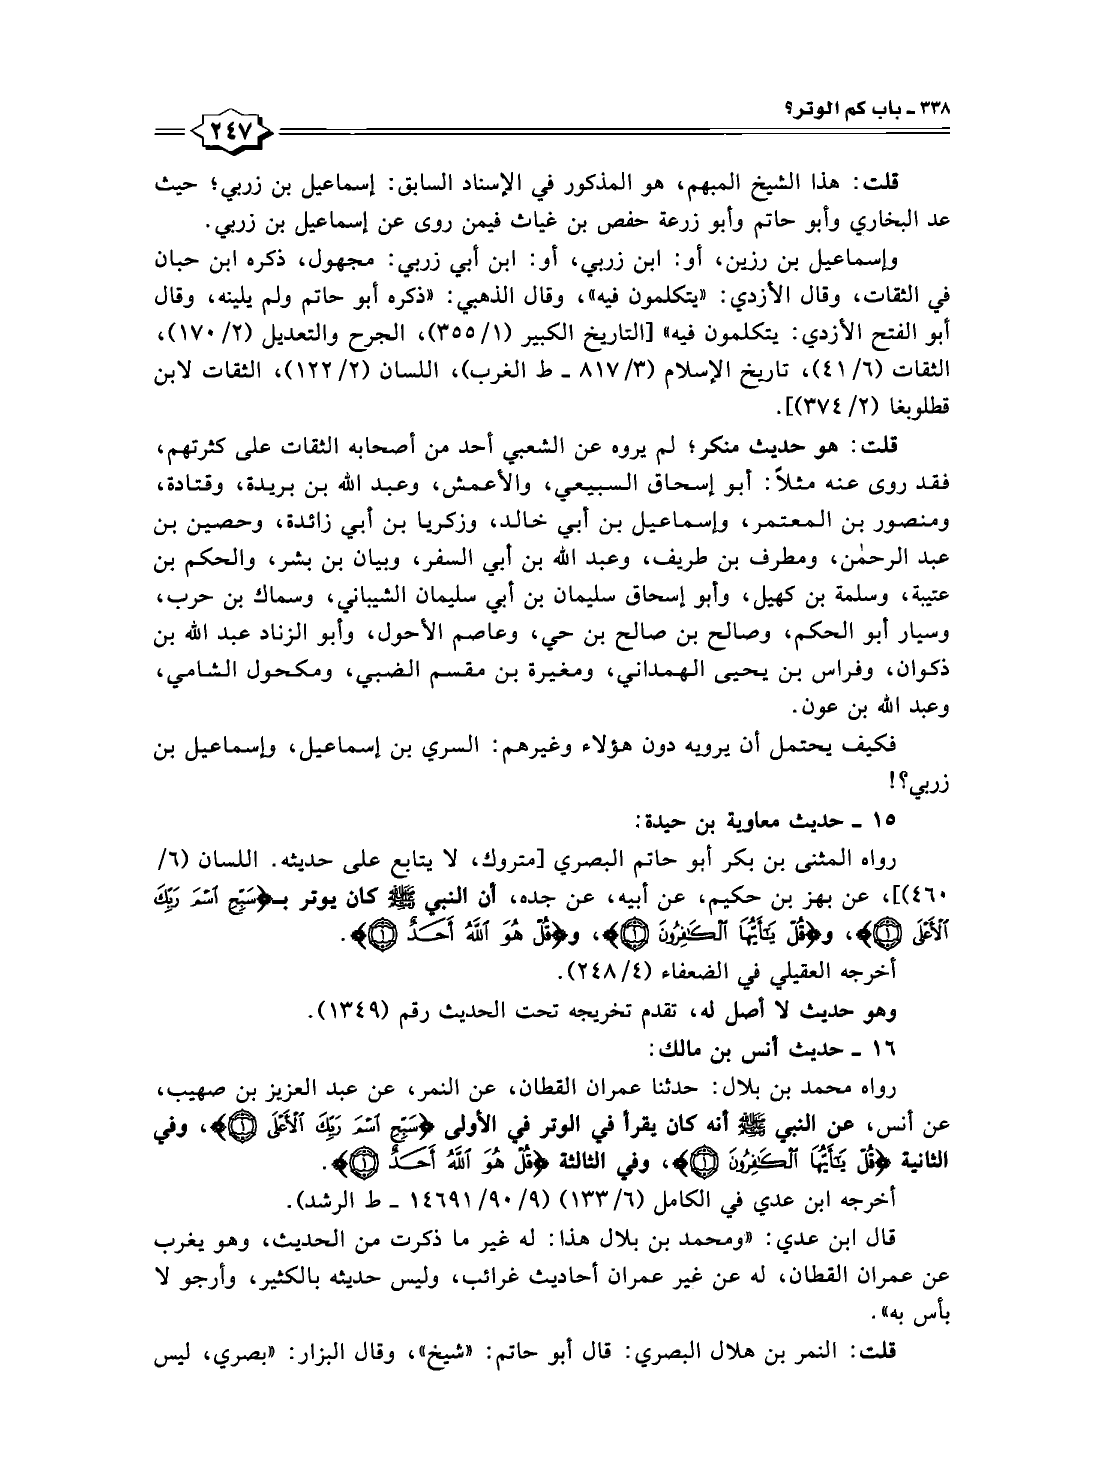 ٣٣٨ ـ باب كم الوتر؟
٢٤٧
قلت: هذا الشيخ المبهم، هو المذكور في الإسناد السابق: إسماعيل بن زربي؛ حيث
عد البخاري وأبو حاتم وأبو زرعة حفص بن غياث فيمن روى عن إسماعيل بن زربي.
وإسماعيل بن رزين، أو: ابن زربي، أو: ابن أبي زربي: مجهول، ذكره ابن حبان
في الثقات، وقال الأزدي: «يتكلمون فيه»، وقال الذهبي: «ذكره أبو حاتم ولم يلينه، وقال
أبو الفتح الأزدي: يتكلمون فيه» [التاريخ الكبير (١/ ٣٥٥)، الجرح والتعديل (٢/ ١٧٠)،
الثقات (٦/ ٤١)، تاريخ الإسلام (٣/ ٨١٧ ـ ط الغرب)، اللسان (٢/ ١٢٢)، الثقات لابن
قطلوبغا (٢/ ٣٧٤)].
قلت: هو حديث منكر؛ لم يروه عن الشعبي أحد من أصحابه الثقات على كثرتهم،
فقد روى عنه مثلاً: أبو إسحاق السبيعي، والأعمش، وعبد الله بن بريدة، وقتادة،
ومنصور بن المعتمر، وإسماعيل بن أبي خالد، وزكريا بن أبي زائدة، وحصين بن
عبد الرحمٰن، ومطرف بن طريف، وعبد الله بن أبي السفر، وبيان بن بشر، والحكم بن
عتيبة، وسلمة بن كهيل، وأبو إسحاق سليمان بن أبي سليمان الشيباني، وسماك بن حرب،
وسيار أبو الحكم، وصالح بن صالح بن حي، وعاصم الأحول، وأبو الزناد عبد الله بن
ذكوان، وفراس بن يحيى الهمداني، ومغيرة بن مقسم الضبي، ومكحول الشامي،
وعبد الله بن عون.
فكيف يحتمل أن يرويه دون هؤلاء وغيرهم: السري بن إسماعيل، وإسماعيل بن
زربي؟!
١٥ ـ حديث معاوية بن حيدة:
رواه المثنى بن بكر أبو حاتم البصري [متروك، لا يتابع على حديثه. اللسان (٦/
٤٦٠)]، عن بهز بن حكيم، عن أبيه، عن جده، أن النبي ﷺ كان يوتر بـ﴿سَبِّحِ ٱسْمَ رَبِّكَ
ٱلْأَعْلَى ۝١﴾، و﴿قُلْ يَٰٓأَيُّهَا ٱلْكَٰفِرُونَ ۝١﴾، و﴿قُلْ هُوَ ٱللَّهُ أَحَدٌ ۝١﴾.
أخرجه العقيلي في الضعفاء (٤/ ٢٤٨).
وهو حديث لا أصل له، تقدم تخريجه تحت الحديث رقم (١٣٤٩).
١٦ ـ حديث أنس بن مالك:
رواه محمد بن بلال: حدثنا عمران القطان، عن النمر، عن عبد العزيز بن صهيب،
عن أنس، عن النبي ﷺ أنه كان يقرأ في الوتر في الأولى ﴿سَبِّحِ ٱسْمَ رَبِّكَ ٱلْأَعْلَى ۝١﴾، وفي
الثانية ﴿قُلْ يَٰٓأَيُّهَا ٱلْكَٰفِرُونَ ۝١﴾، وفي الثالثة ﴿قُلْ هُوَ ٱللَّهُ أَحَدٌ ۝١﴾.
أخرجه ابن عدي في الكامل (٦/ ١٣٣) (٩/ ٩٠/ ١٤٦٩١ ـ ط الرشد).
قال ابن عدي: «ومحمد بن بلال هذا: له غير ما ذكرت من الحديث، وهو يغرب
عن عمران القطان، له عن غير عمران أحاديث غرائب، وليس حديثه بالكثير، وأرجو لا
بأس به».
قلت: النمر بن هلال البصري: قال أبو حاتم: «شيخ»، وقال البزار: «بصري، ليس